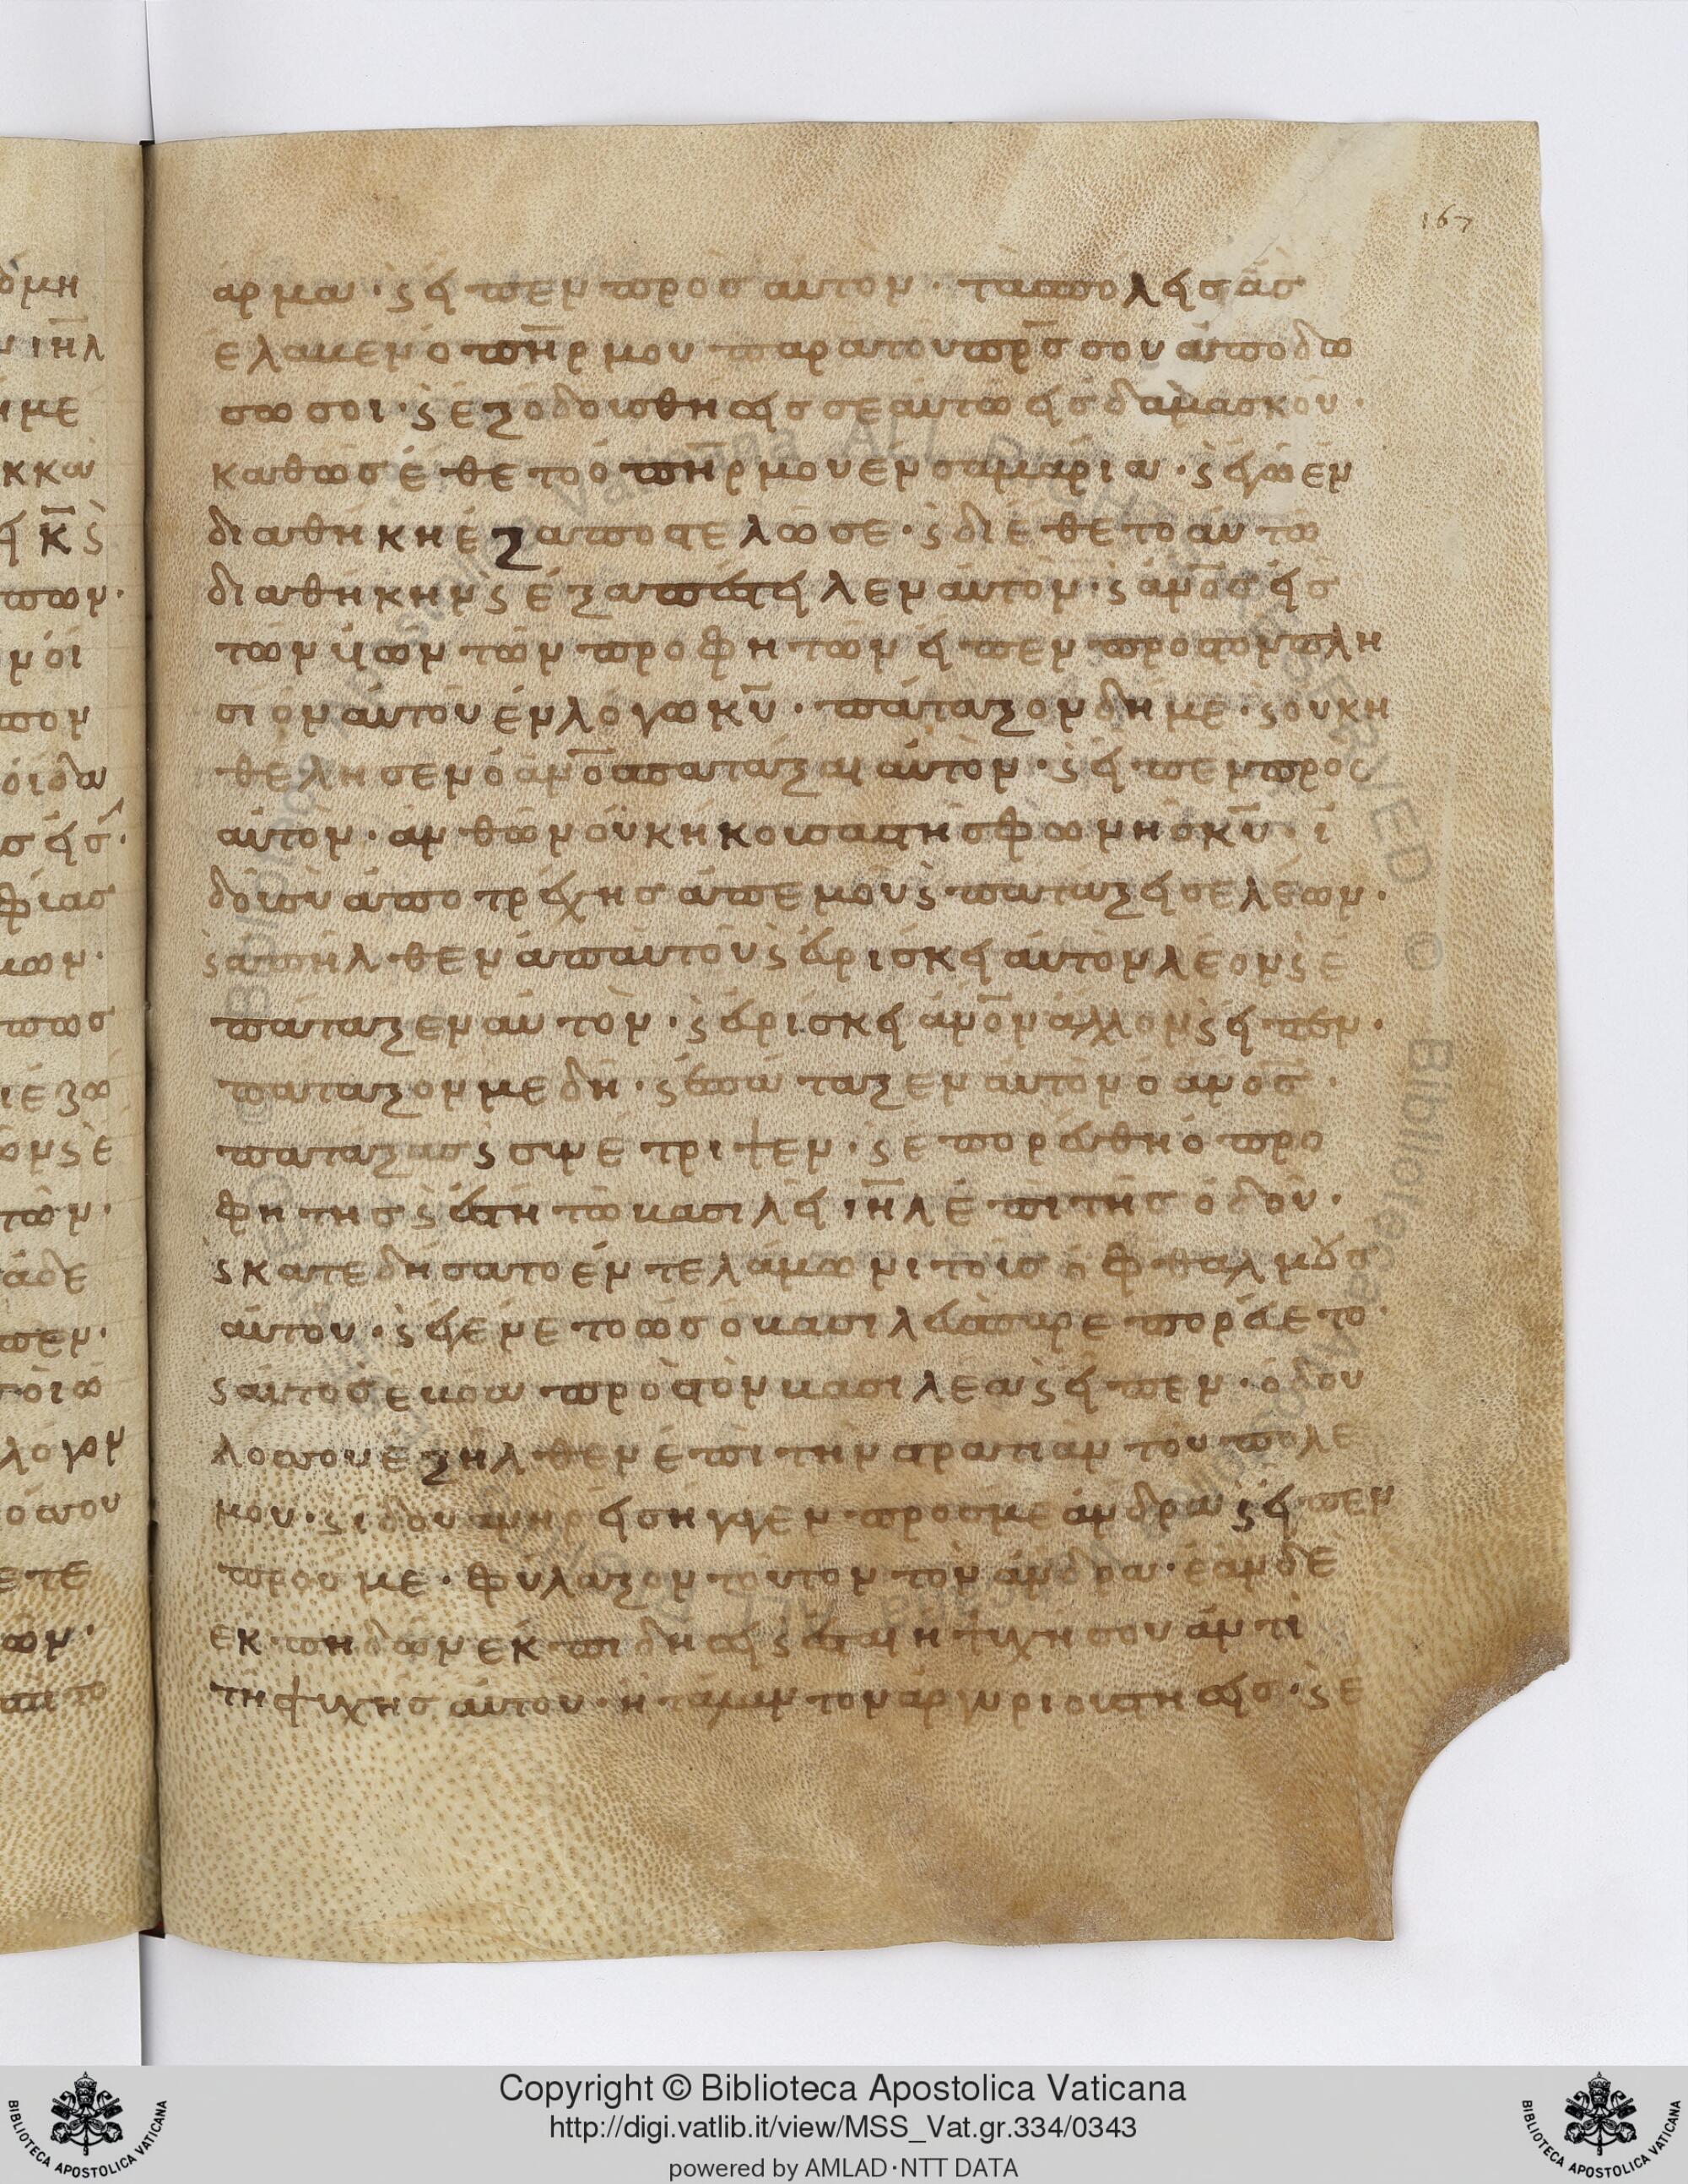 167
ἅρμα · ϛ εἶπεν πρὸς αὐτόν · τὰσ πόλεις ἃσ
ἔλαβεν ὁ π̅η̅ρ μου παρὰ τοῦ π̅ρ̅σ σου ἀποδώ
σω σοι · ϛ ἐξόδουσ θήσεις σεαυτῶ εἰσ δαμασκὸν ·
καθὼσ ἔθετο ὁ π̅η̅ρ μου ἐν σαμαρία · ϛ ἐγὼ ἐν
διαθήκη ἐξαποστελῶ σε · ϛ διέθετο αὐτῶ
διαθήκην ϛ ἐξαπέστειλεν αὐτὸν · ϛ ἀν̅ο̅σ εἷσ
τῶν υἱῶν τῶν προφητῶν εἶπεν πρὸσ τὸν πλη
σίον αὐτοῦ ἐν λόγω κ̅υ̅ · πάταξον δή με · ϛ οὐκ ἠ
θέλησεν ὁ ἀν̅ο̅σ πατάξαι αὐτὸν · ϛ εἶπεν πρὸς
αὐτόν · ἀνθ ὧν οὐκ ἤκουσασ τῆσ φωνῆσ κ̅υ̅ · ἰ
δοὺ σὺ ἀποτρέχησ ἀπ ἐμοῦ ϛ πατάξει σε λέων ·
ϛ ἀπῆλθεν ἀπ αὐτοῦ ϛ εὑρίσκει αὐτὸν λέον ϛ ἐ
πάταξεν αὐτὸν · ϛ εὑρίσκει ἀν̅ο̅ν ἄλλον ϛ εἶπεν ·
πάταξόν με δὴ · ϛ ἐπάταξεν αὐτὸν ὁ ἀν̅ο̅σ ·
πατάξασ ϛ συνέτριψεν · ϛ ἐπορεύθη ὁ προ
φήτησ ϛ ἔστη τῶ βασιλεῖ ι̅η̅λ ἐπὶ τῆσ ὁδοῦ ·
ϛ κατεδήσατο ἐν τελαμῶνι τοὺσ ὀφθαλμοὺσ
αὐτοῦ · ϛ ἐγένετο ὡσ ὁ βασιλεὺσ παρεπορεύετο ·
ϛ αὐτὸσ ἐβόα πρὸσ τὸν βασιλέα ϛ εἶπεν · ὁ δοῦ
λοσ σου ἐξῆλθεν ἐπὶ τὴν στρατιὰν τοῦ πολέ
μου · ϛ ἰδοὺ ἀνὴρ εἰσήγαγεν πρόσ με ἄνδρα ϛ εἶπεν
πρόσ με · φύλαξον τοῦτον τὸν ἄνδρα · ἐὰν δὲ
ἐκπηδῶν ἐκπηδήσει ϛ ἔσται ἡ ψυχή σου ἀντὶ
τῆ ψυχῆσ αὐτοῦ · ἢ τάλαντον ἀργυρίου στήσεις · ϛ ἐ
Copyright © Biblioteca Apostolica Vaticana
http://digi.vatlib.it/view/MSS_Vat.gr.334/0343
powered by AMLAD·NTT DATA
BIBLIOTECA APOSTOLICA VATICANA
BIBLIOTECA APOSTOLICA VATICANA